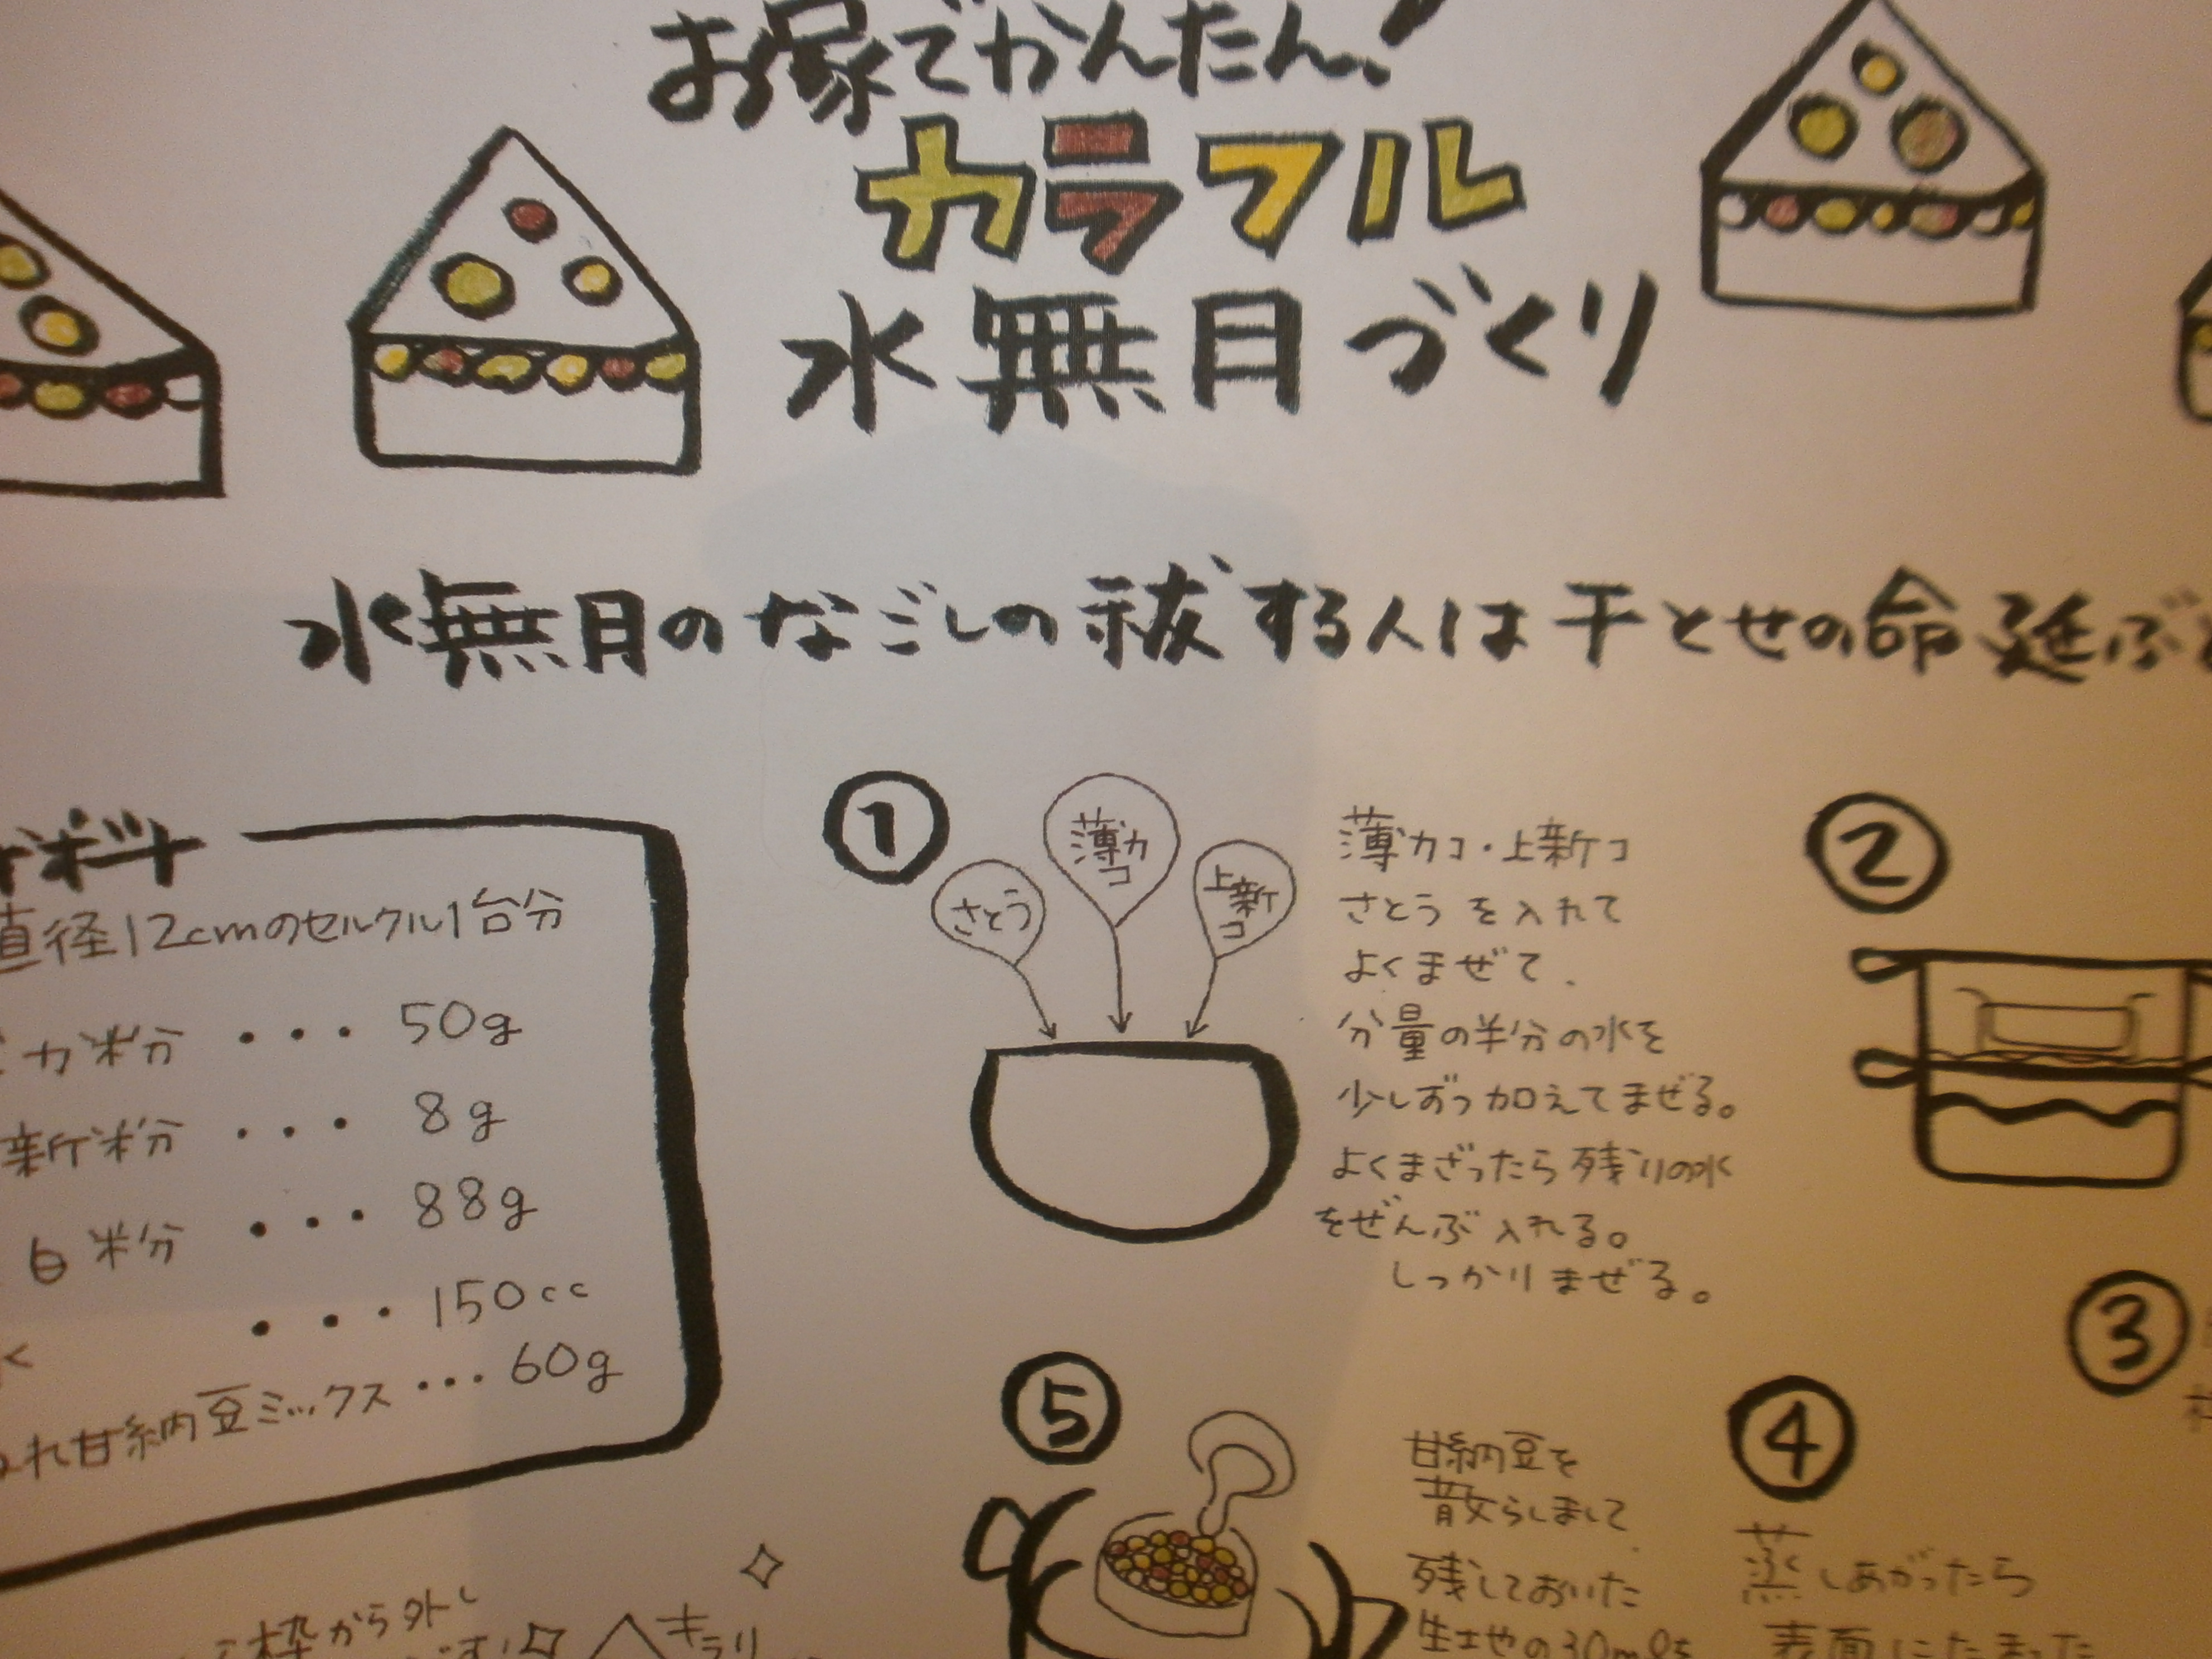 お家でかんたん!
カラフル
水無月づくり
水無月のなごしの祓する人は千とせの命延ぶ
材料
直径12cmのセルクル1台分
力粉 ・・・ 50g
新粉 ・・・ 8g
白粉 ・・・ 88g
・・・ 150cc
甘納豆ミックス ・・・ 60g
①
さとう
薄力コ
上新コ
薄力コ・上新コ
さとうを入れて
よくまぜて、
分量の半分の水を
少しずつ加えてまぜる。
よくまざったら残りの水
をぜんぶ入れる。
しっかりまぜる。
②
③
④
蒸しあがったら
表面にたまった
⑤
甘納豆を
散らしまして、
残しておいた
生地の30mlを
枠から外し
キラリ